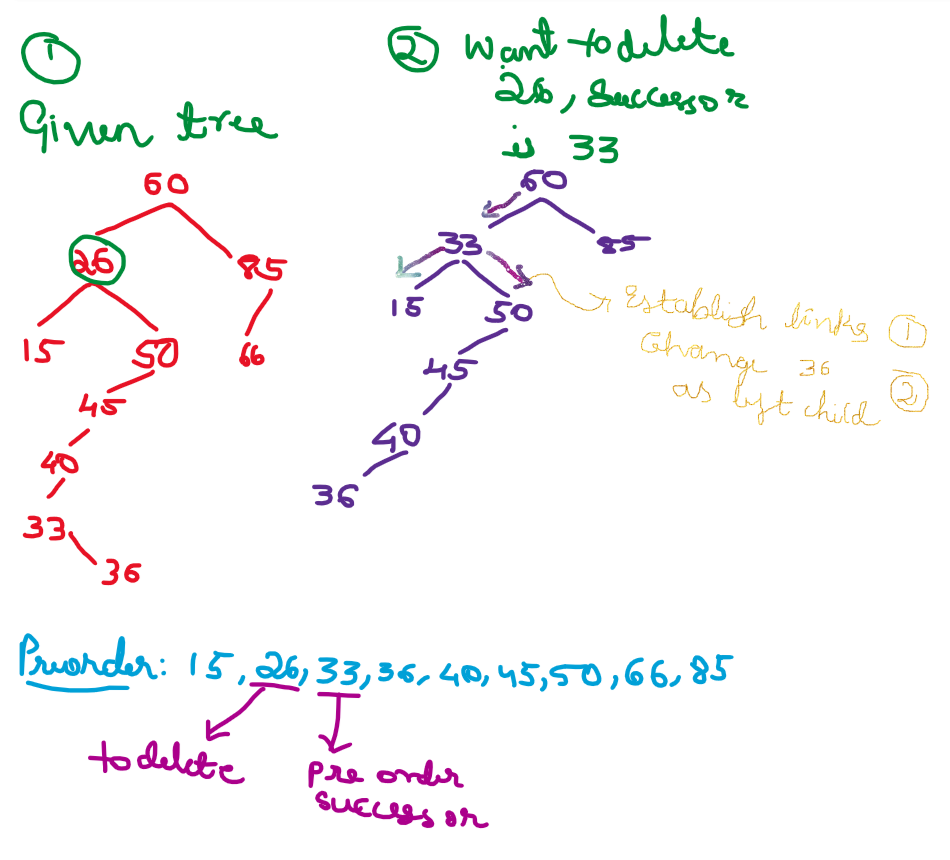 ①
Given tree
60
26 85
15 50 66
45
40
33
36
② Want to delete
26, Successor
is 33
60
33 85
15 50
45
40
36
Establish links ①
Change 36
as left child ②
Preorder: 15, 26, 33, 36, 40, 45, 50, 66, 85
to delete
Pre order
successor